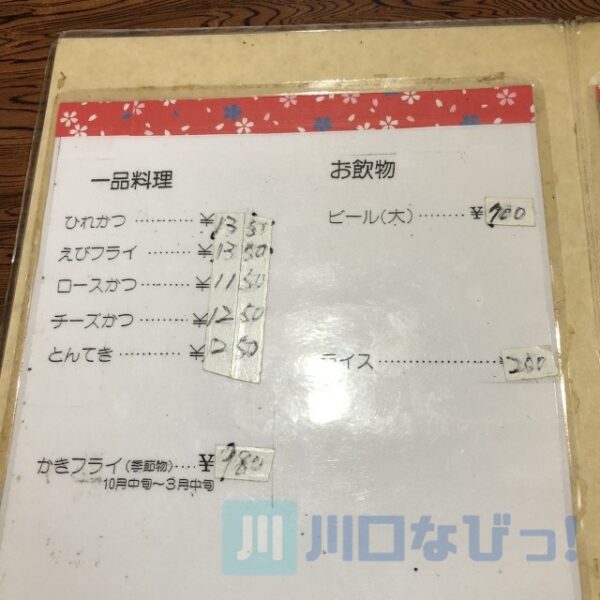 一品料理
ひれかつ ………… ¥1350
えびフライ ……… ¥1350
ロースかつ ……… ¥1150
チーズかつ ……… ¥1250
とんてき ………… ¥1250
かきフライ(季節物)…. ¥980
10月中旬～3月中旬
お飲物
ビール(大) …….. ¥700
ライス ……………… 200
川 川口なびっ!